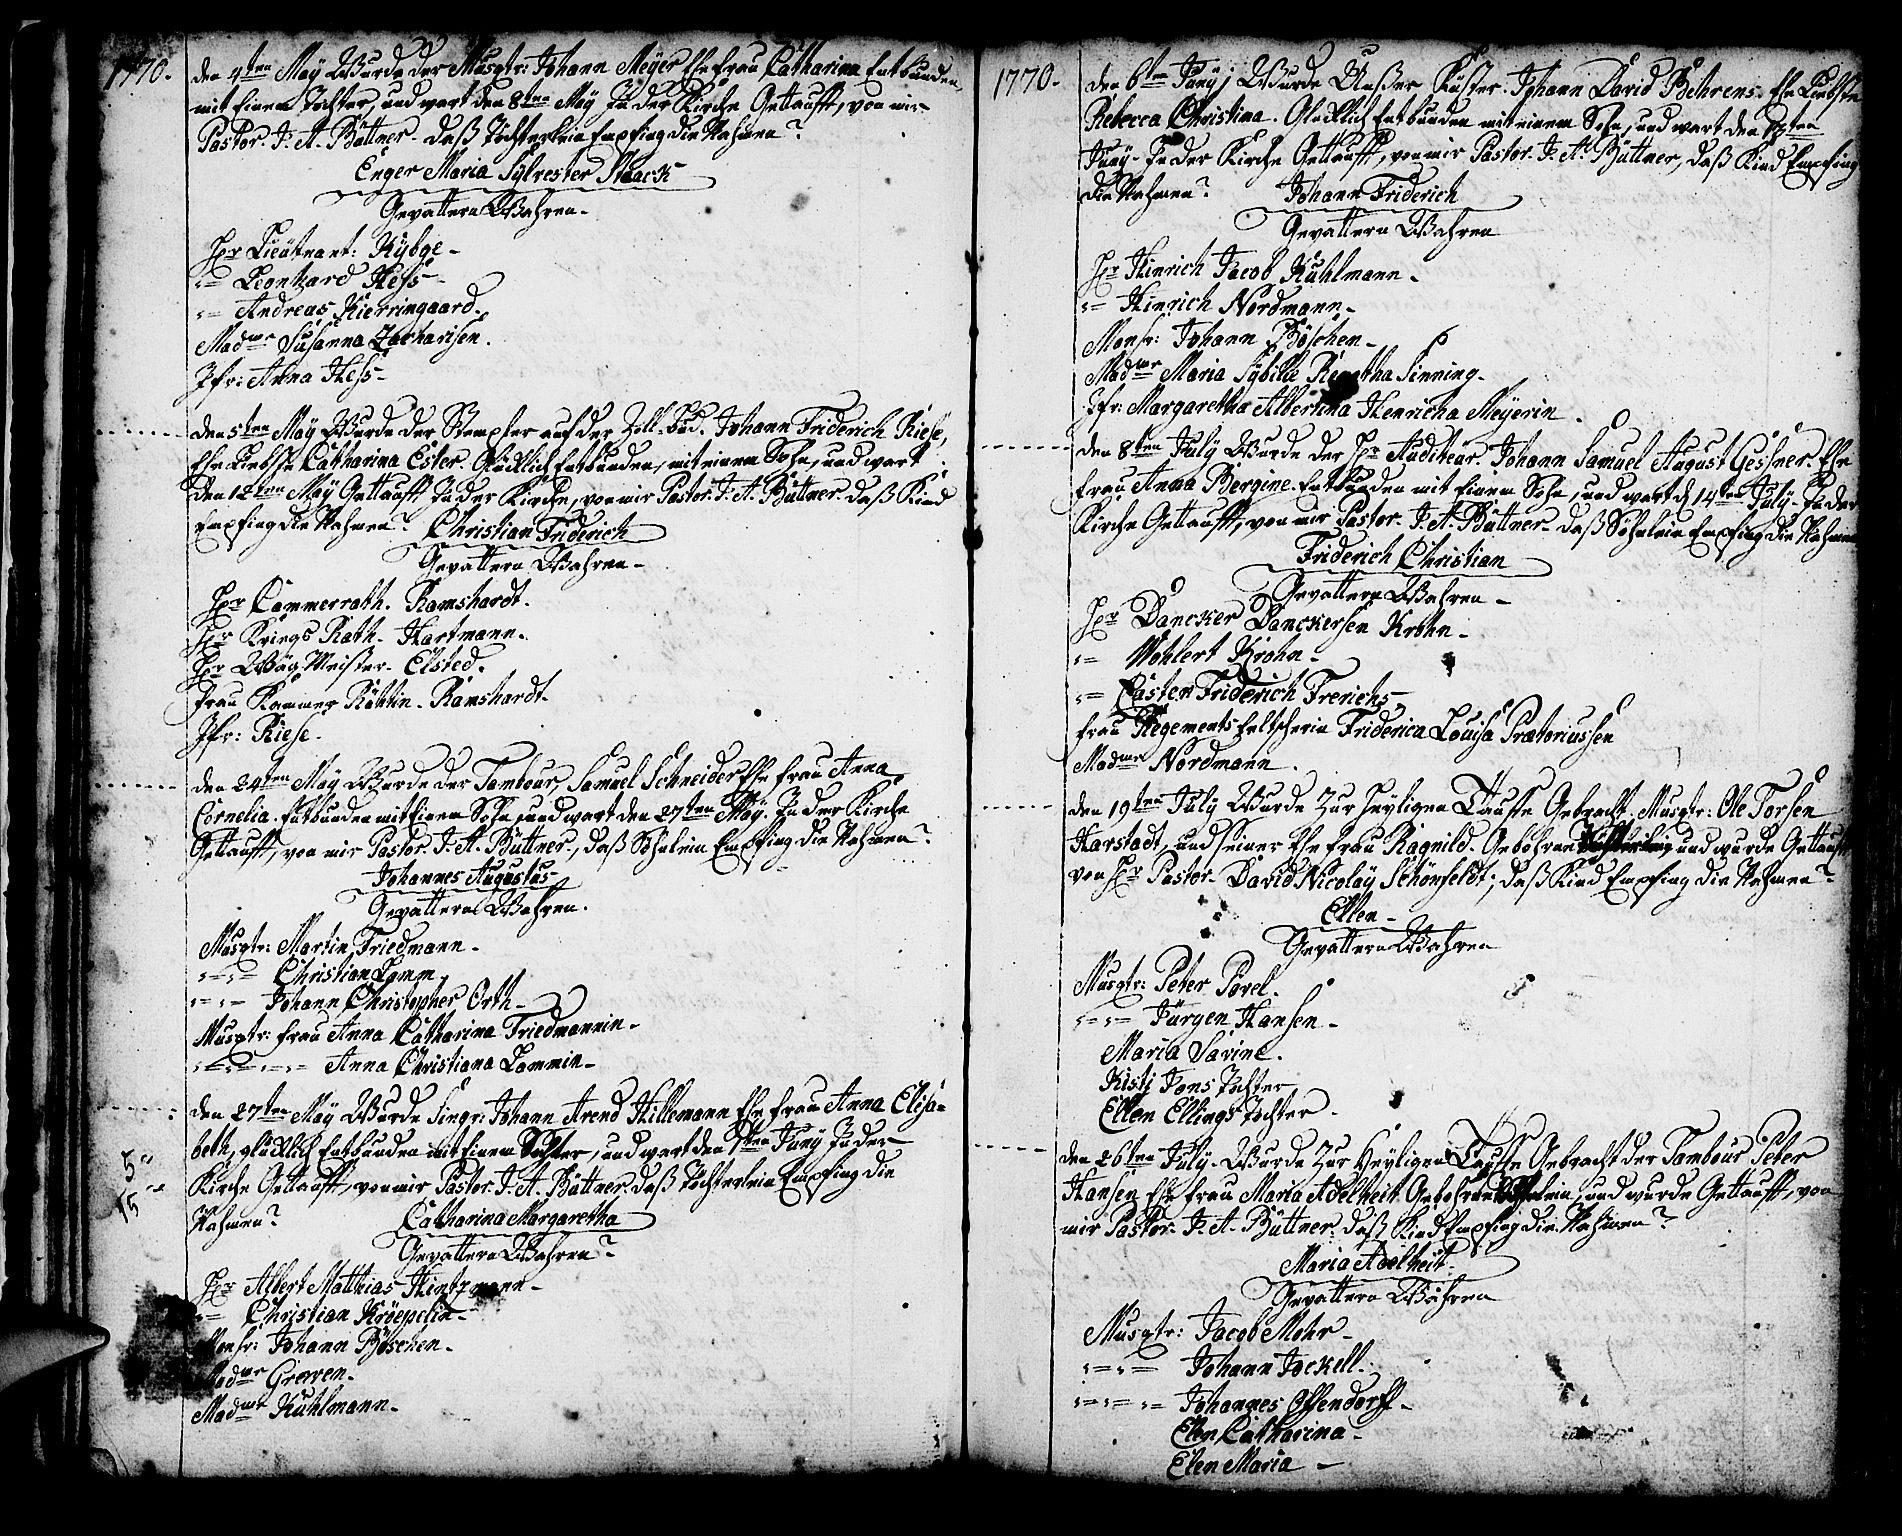 1770.
den 4ten Maÿ Wurde der Musqtr: Johann Meÿer Ehefrau Catharina Entbunden
mit Einem Tochter, und wart den 8ten Maÿ in der Kirche Getaufft, von mir
Pastor. J. A. Büttner. daß Töchterlein Empfing die Nahmen?
Enger Maria Sylvester Staack
Gevattern Wahren.
Hr Lieutnant: Kÿbge
"= Leonhard Hess
"= Andreas Kierringaard.
Madme Susanna Zacharisen.
Jfr: Anna Hess
den 5ten Maÿ Wurde der Stempler auf der Zoll-bud. Johann Friderich Riese,
Ehe Liebste Catharina Ester. Glücklich Entbunden, mit einem Sohn, und wart
den 12ten Maÿ Getaufft in der Kirche, von mir Pastor. J. A. Büttner. daß Kind
Empfing die Nahmen? Christian Friderich
Gevattern Wahren
Hr Cammerrath. Ramshardt.
Hr Kriegs Rath. Hartmann.
Hr Wäg Meister. Elsted.
Frau Kammer Räthin. Ramshardt.
Jfr: Riese.
den 24ten Maÿ Wurde der Tambour, Samuel Schneider Ehe frau Anna
Cornelia. Entbunden mit Einem Sohn, und wart den 27ten Maÿ. in der Kirche
Getaufft, von mir Pastor. J. A. Büttner., daß Söhnlein Empfing die Nahmen?
Johannes Augustus
Gevattern Wahren.
Musqtr: Martin Friedmann
"="= Christian Lamm
"="= Johann Christopher Orth
Musqtr: frau Anna Catharina Friedmannin
"="="= Anna Christiana Lammin
den 27ten Maÿ Wurde Singr: Johann Arend Hillemann Ehe frau Anna Elisa-
beth, glücklich Entbunden mit Einem Tochter, und wart den 1ten Junÿ in der
Kirche Getaufft, von mir Pastor. J. A. Büttner. daß Töchterlein Empfing die
Nahmen? Catharina Margaretha
Gevattern Wahren?
5"
15"
Hr Albert Matthias Hintzmann
"= Christian Kröepelin
Monsr: Johann Böschen.
Madme Greven.
Madme Kuhlmann.
1770.
den 6ten Junÿ, Wurde Unßer Küster. Johann David Behrens. Ehe Liebste
Rebecca Christina. Glücklich Entbunden mit einem Sohn, und wart den
Junÿ. in der Kirche Getaufft, von mir Pastor. J. A. Büttner, daß Kind Empfing
die Nahmen? Johann Friderich
Gevattern Wahren
Hr Hinrich Jacob Kuhlmann.
"= Hinrich Nordmann.
Monsr: Johann Böschen
Madme Maria Sybille Sinning.
Jfr: Margaretha Albertina Henricha Meyerin.
den 8ten Julÿ Wurde der Hr Auditeur. Johann Samuel August Gessner. Ehe
frau Anna Bergine. Entbunden mit Einem Sohn, und wart d 14ten Julÿ. in der
Kirche Getaufft, von mir Pastor. J. A. Büttner. daß Söhnlein Empfing die Nahmen
Friderich Christian
Gevattern Wahren
Hr Dancker Danckersen Krohn
"= Wohlert Krohn
"= Casten Friderich Frerichs
frau Regements Feltscherin Friderica Louisa Prætoriussen
Madme Nordmann.
den 19ten Julÿ Wurde Zur Heyligen Tauffe Gebracht, Musqtr: Ole Torsen
Harstadt, und seiner Ehe frau Ragnild. Gebohrne und wurde Getaufft
von Hr Pastor. David Nicolaÿ Schönfeldt; daß Kind Empfing die Nahmen?
Ellen
Gevattern Wahren
Musqtr: Peter Povel.
"="= Jürgen Hansen
Maria Savine.
Kisti Jons Tochter
Ellen Ellings Tochter.
den 26ten Julÿ. Wurde Zur Heyligen Tauffe Gebracht der Tambour Peter
Hansen Ehe frau Maria Adelheit. Gebohrne, und wurde Getaufft, von
mir Pastor. J. A. Büttner. daß Kind Empfing die Nahmen?
Maria Adelheit.
Gevattern Wahren
Musqtr: Jacob Mohr
"="= Johann Jockell.
"="="= Johannes Offendorff
Elen Catharina
Elen Maria